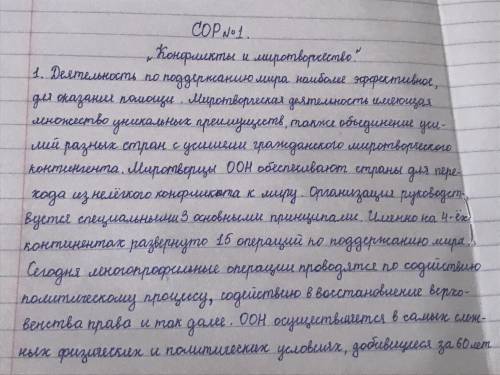 СОР №1.
„Конфликты и миротворчество."
1. Деятельность по поддержанию мира наиболее эффективное,
для оказания помощи. Миротворческая деятельность имеющая
множество уникальных преимуществ, также объединение уси-
лий разных стран с усилиями гражданского миротворческого
контингента. Миротворцы ООН обеспечивают страны для пере-
хода из нелёгкого конфликта к миру. Организация руководст-
вуется специальными 3 основными принципами. Именно на 4-ёх
континентах развернуто 15 операций по поддержанию мира.
Сегодня многопрофильные операции проводятся по содействию
политическому процессу, содействию в восстановление верхо-
венства права и так далее. ООН осуществляется в самых слож-
ных физических и политических условиях, добившиеся за 60 лет